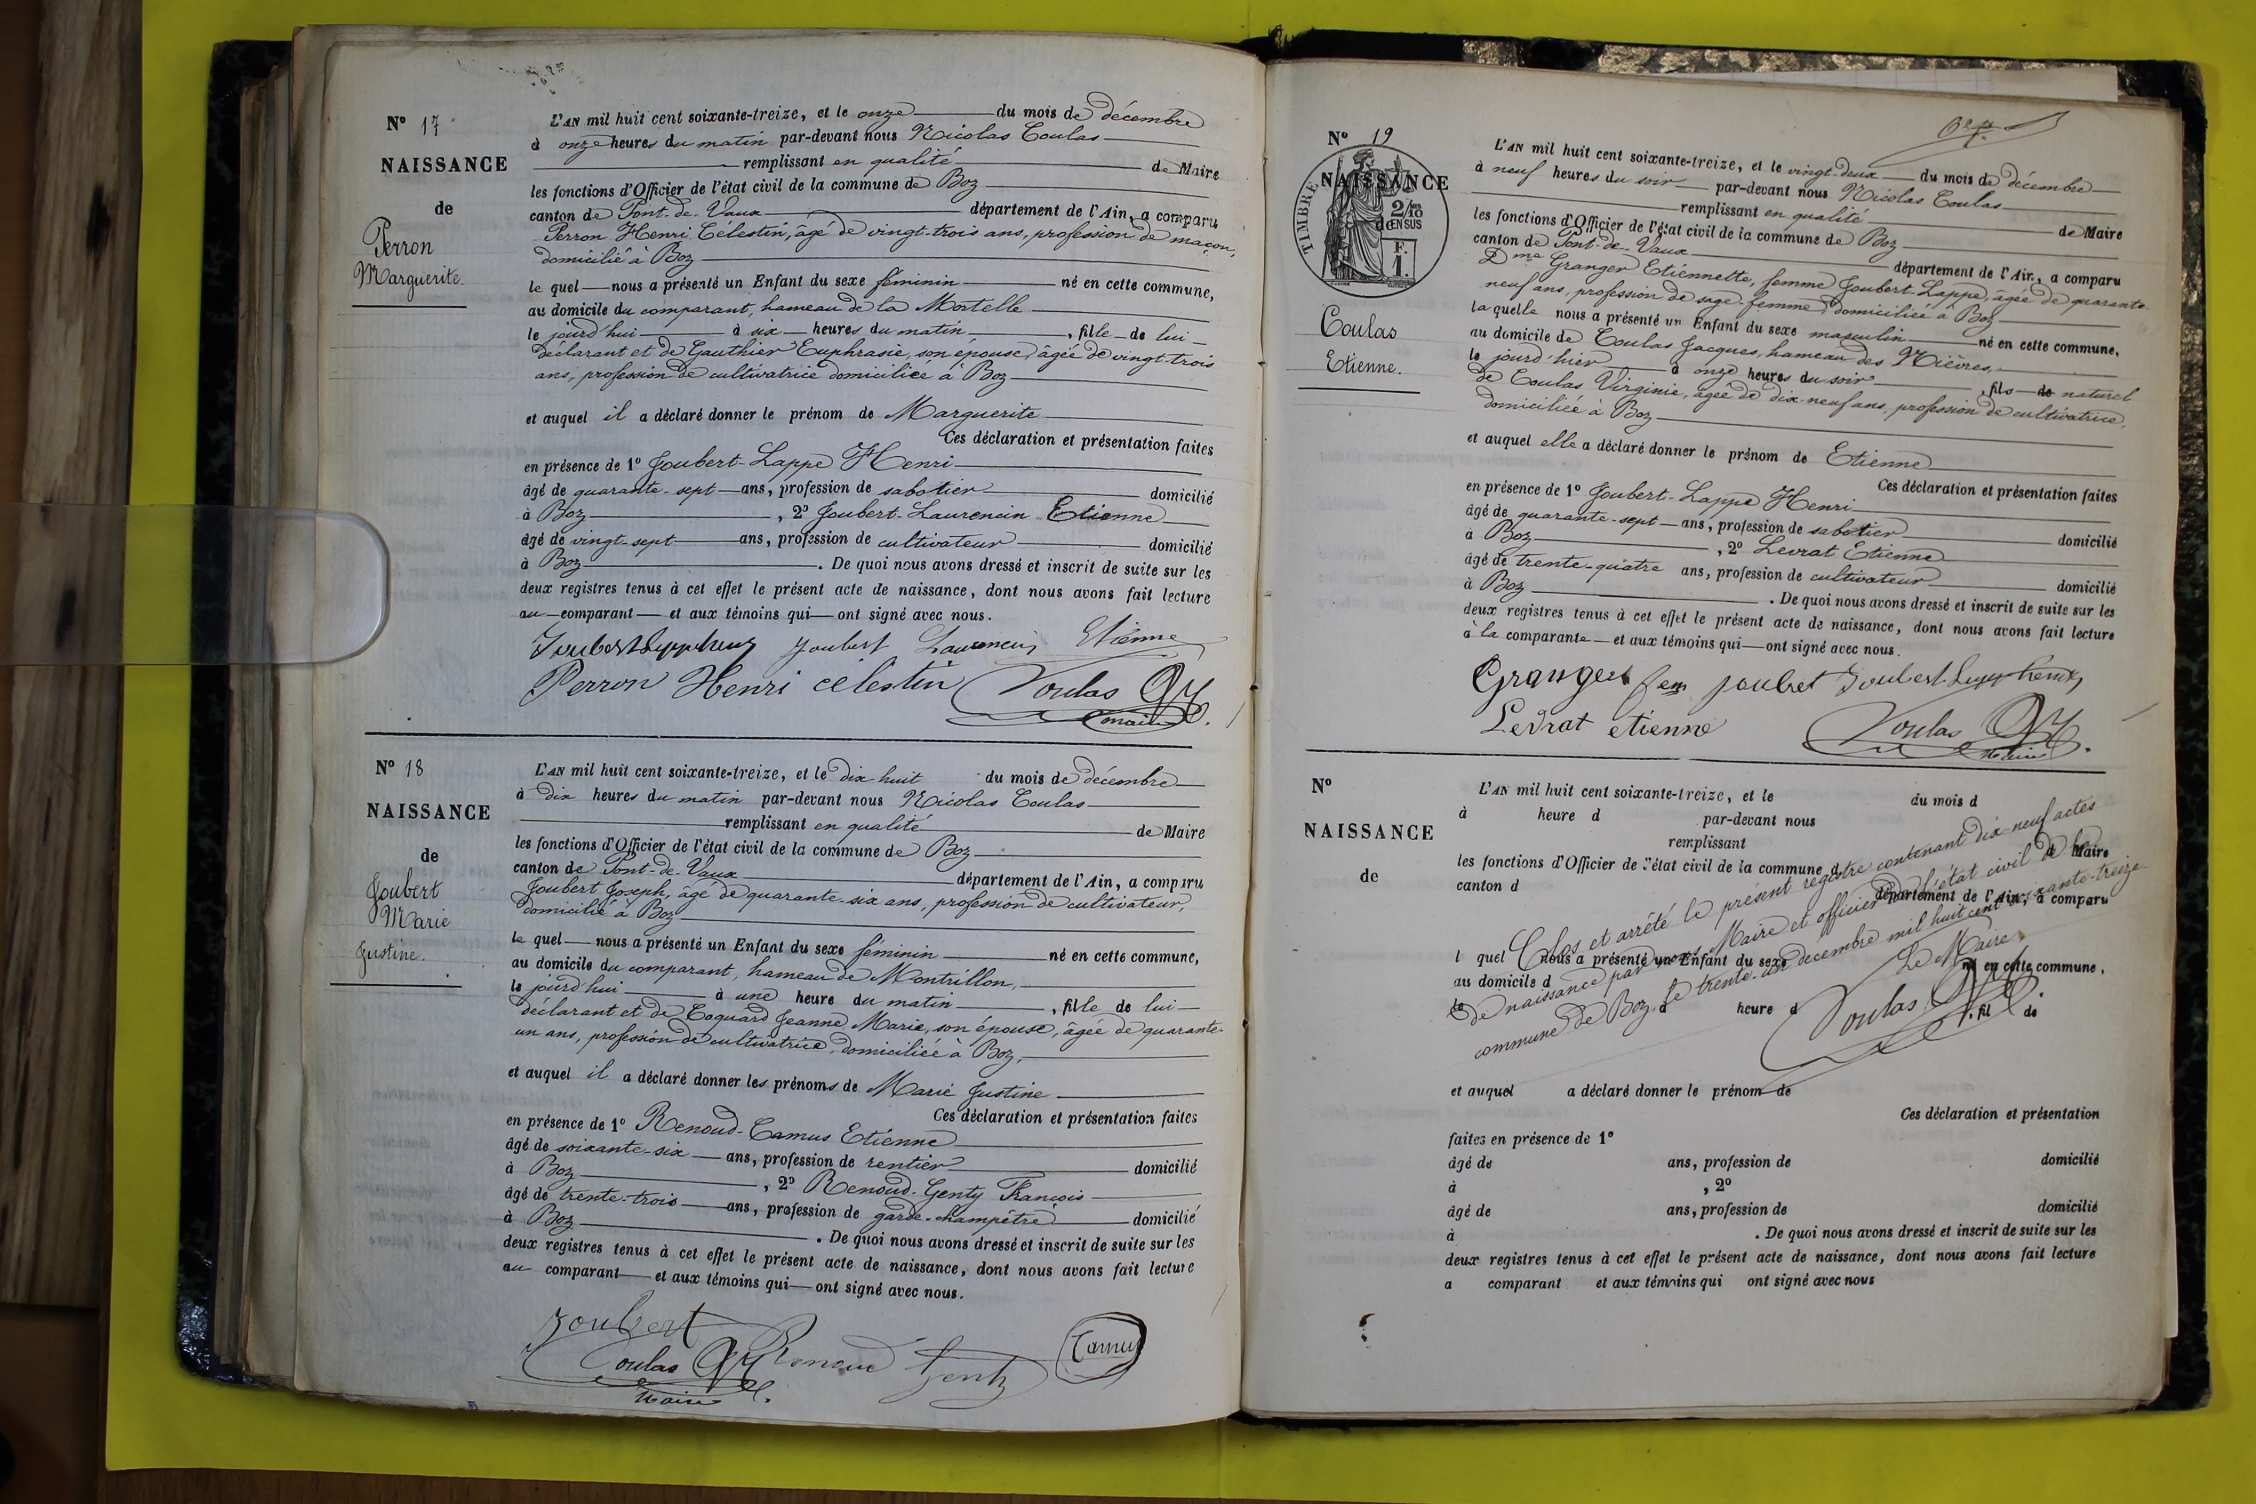 N° 17
NAISSANCE
de
Perron
Marguerite.
L'AN mil huit cent soixante-treize, et le onze du mois de décembre
à onze heures du matin par-devant nous Nicolas Coulas
remplissant en qualité de Maire
les fonctions d'Officier de l'état civil de la commune de Boz
canton de Pont-de-Vaux département de l'Ain, a comparu
Perron Henri Célestin, âgé de vingt-trois ans, profession de maçon,
domicilié à Boz
le quel nous a présenté un Enfant du sexe féminin né en cette commune,
au domicile du comparant, hameau de la Mortelle
le jourd'hui à six heures du matin, fille de lui
déclarant et de Gauthier Euphrasie, son épouse, âgée de vingt-trois
ans, profession de cultivatrice domiciliée à Boz
et auquel il a déclaré donner le prénom de Marguerite
Ces déclaration et présentation faites
en présence de 1° Joubert-Lappe Henri
âgé de quarante-sept ans, profession de sabotier domicilié
à Boz, 2° Joubert-Laurencin Etienne
âgé de vingt-sept ans, profession de cultivateur domicilié
à Boz. De quoi nous avons dressé et inscrit de suite sur les
deux registres tenus à cet effet le présent acte de naissance, dont nous avons fait lecture
au comparant et aux témoins qui ont signé avec nous.
Joubert Laurencin Etienne
Perron Henri célestin Coulas
maire
N° 18
NAISSANCE
de
Joubert
Marie
Justine.
L'AN mil huit cent soixante-treize, et le dix huit du mois de décembre
à dix heures du matin par-devant nous Nicolas Coulas
remplissant en qualité de Maire
les fonctions d'Officier de l'état civil de la commune de Boz
canton de Pont-de-Vaux département de l'Ain, a comparu
Joubert Joseph, âgé de quarante-six ans, profession de cultivateur,
domicilié à Boz
le quel nous a présenté un Enfant du sexe féminin né en cette commune,
au domicile du comparant, hameau de Montrillon,
le jourd'hui à une heure du matin, fille de lui
déclarant et de Coquard Jeanne Marie, son épouse, âgée de quarante-
un ans, profession de cultivatrice, domiciliée à Boz,
et auquel il a déclaré donner les prénoms de Marie Justine
Ces déclaration et présentation faites
en présence de 1° Renoud-Camus Etienne
âgé de soixante-six ans, profession de rentier domicilié
à Boz, 2° Renoud-Genty François
âgé de trente-trois ans, profession de garde-champêtre domicilié
à Boz. De quoi nous avons dressé et inscrit de suite sur les
deux registres tenus à cet effet le présent acte de naissance, dont nous avons fait lecture
au comparant et aux témoins qui ont signé avec nous.
Joubert
Coulas Renoud Genty Camus
Maire
N° 19
NAISSANCE
de
TIMBRE
2/10
EN SUS
F.
1.
Coulas
Etienne.
L'AN mil huit cent soixante-treize, et le vingt-deux du mois de décembre
à neuf heures du soir par-devant nous Nicolas Coulas
remplissant en qualité de Maire
les fonctions d'Officier de l'état civil de la commune de Boz
canton de Pont-de-Vaux département de l'Ain, a comparu
Dme Granger Etiennette, femme Joubert-Lappe, âgée de quarante-
neuf ans, profession de sage-femme, domiciliée à Boz
la quelle nous a présenté un Enfant du sexe masculin né en cette commune,
au domicile de Coulas Jacques, hameau des Nièvres,
le jourd'hier à onze heures du soir, fils de naturel
de Coulas Virginie, âgée de dix-neuf ans, profession de cultivatrice,
domiciliée à Boz
et auquel elle a déclaré donner le prénom de Etienne
Ces déclaration et présentation faites
en présence de 1° Joubert-Lappe Henri
âgé de quarante-sept ans, profession de sabotier domicilié
à Boz, 2° Levrat Etienne
âgé de trente-quatre ans, profession de cultivateur domicilié
à Boz. De quoi nous avons dressé et inscrit de suite sur les
deux registres tenus à cet effet le présent acte de naissance, dont nous avons fait lecture
à la comparante et aux témoins qui ont signé avec nous.
Granger fem joubret
Levrat etienne Coulas
Maire
N°
NAISSANCE
de
L'AN mil huit cent soixante-treize, et le du mois d
à heure d par-devant nous
remplissant
de Maire
les fonctions d'Officier de l'état civil de la commune d
canton d département de l'Ain, a comparu
l quel nous a présenté un Enfant du sexe né en cette commune,
au domicile d
le à heure d, fil de
Clos et arrêté le présent registre contenant dix-neuf actes
de naissance par nous Maire et officier de l'état civil de la
commune de Boz, le trente-un décembre mil huit cent soixante-treize
Le Maire
Coulas
et auquel a déclaré donner le prénom de
Ces déclaration et présentation
faites en présence de 1°
âgé de ans, profession de domicilié
à , 2°
âgé de ans, profession de domicilié
à . De quoi nous avons dressé et inscrit de suite sur les
deux registres tenus à cet effet le présent acte de naissance, dont nous avons fait lecture
a comparant et aux témoins qui ont signé avec nous